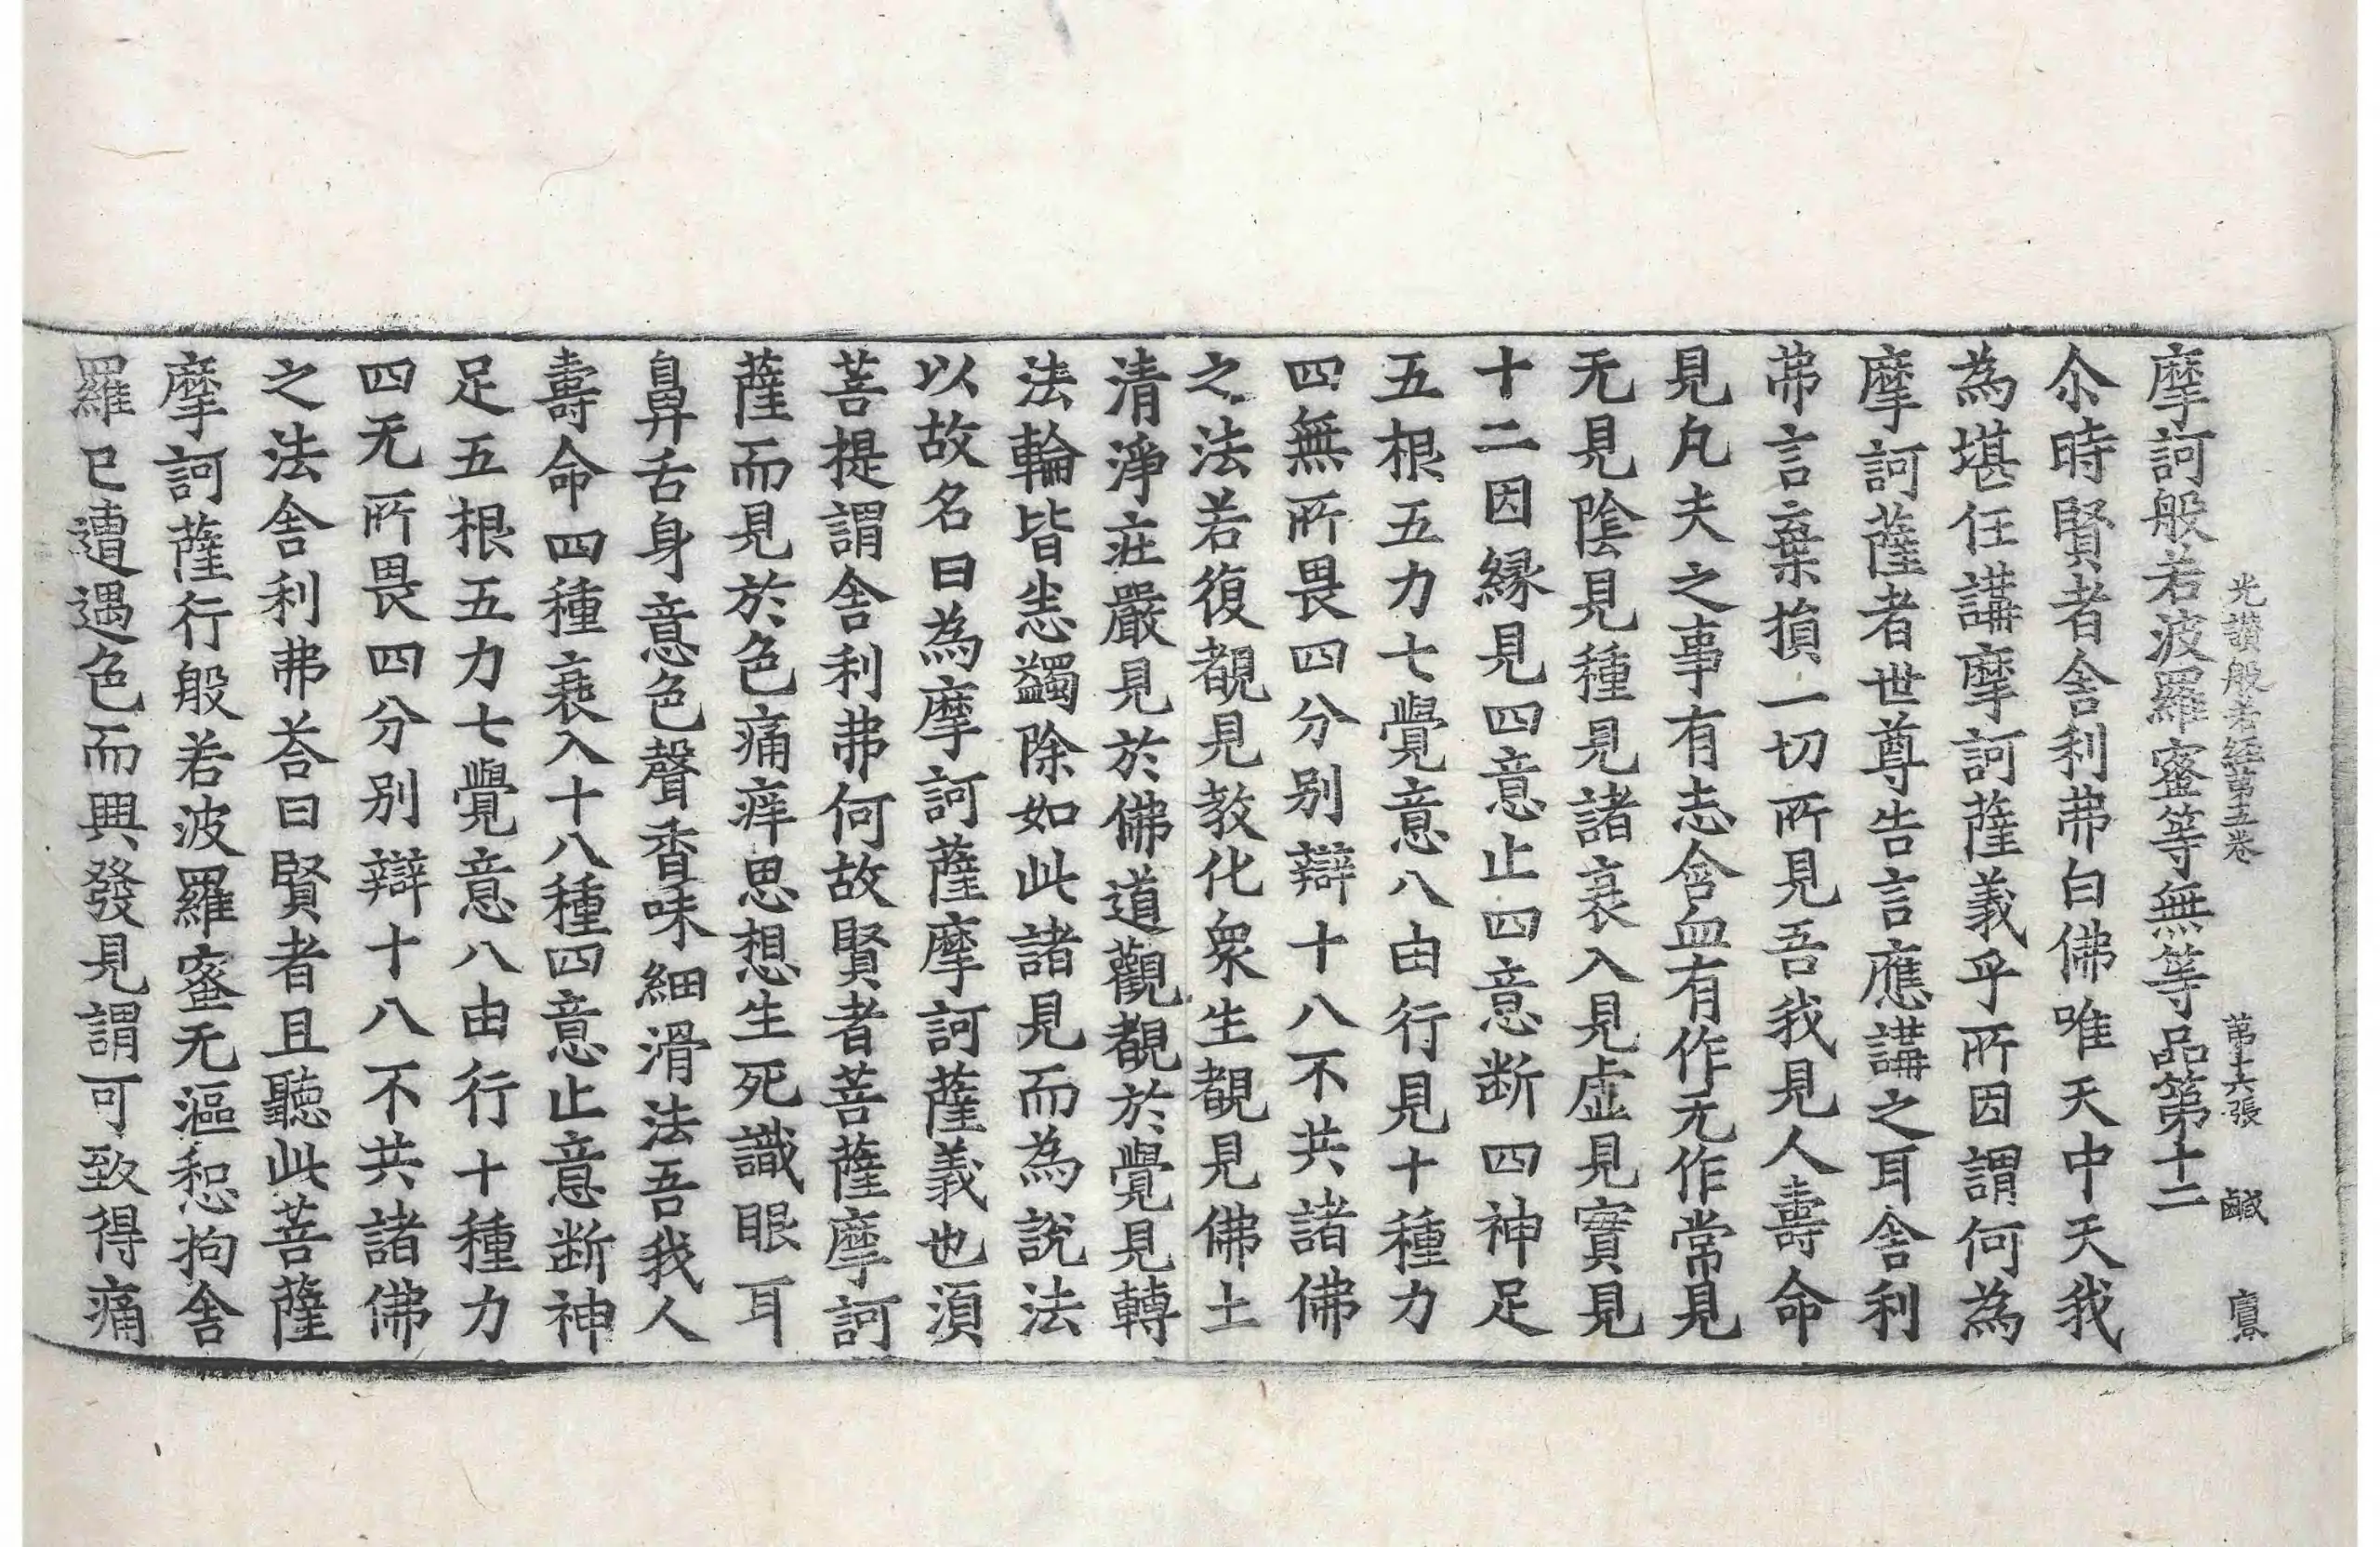 光讃般若経第五卷　第十六張　鹹
摩訶般若波羅蜜等無等品第十二
尒時賢者舎利弗白佛唯天中天我
為堪任講摩訶薩義乎所因謂何為
摩訶薩者世尊告言應講之耳舎利
弗言棄損一切所見吾我見人壽命
見凡夫之事有志含血有作无作常見
无見陰見種見諸衰入見虚見實見
十二因縁見四意止四意断四神足
五根五力七覺意八由行見十種力
四無所畏四分别辯十八不共諸佛
之法若復覩見教化衆生覩見佛土
清淨莊嚴見於佛道觀覩於覺見轉
法輪皆悉蠲除如此諸見而為說法
以故名曰為摩訶薩摩訶薩義也湏
菩提謂舎利弗何故賢者菩薩摩訶
薩而見於色痛痒思想生死識眼耳
鼻舌身意色聲香味細滑法吾我人
壽命四種衰入十八種四意止意断神
足五根五力七覺意八由行十種力
四无所畏四分别辯十八不共諸佛
之法舎利弗荅曰賢者且聽此菩薩
摩訶薩行般若波羅蜜无漚惒拘舎
羅已遭遇色而興發見謂可致得痛